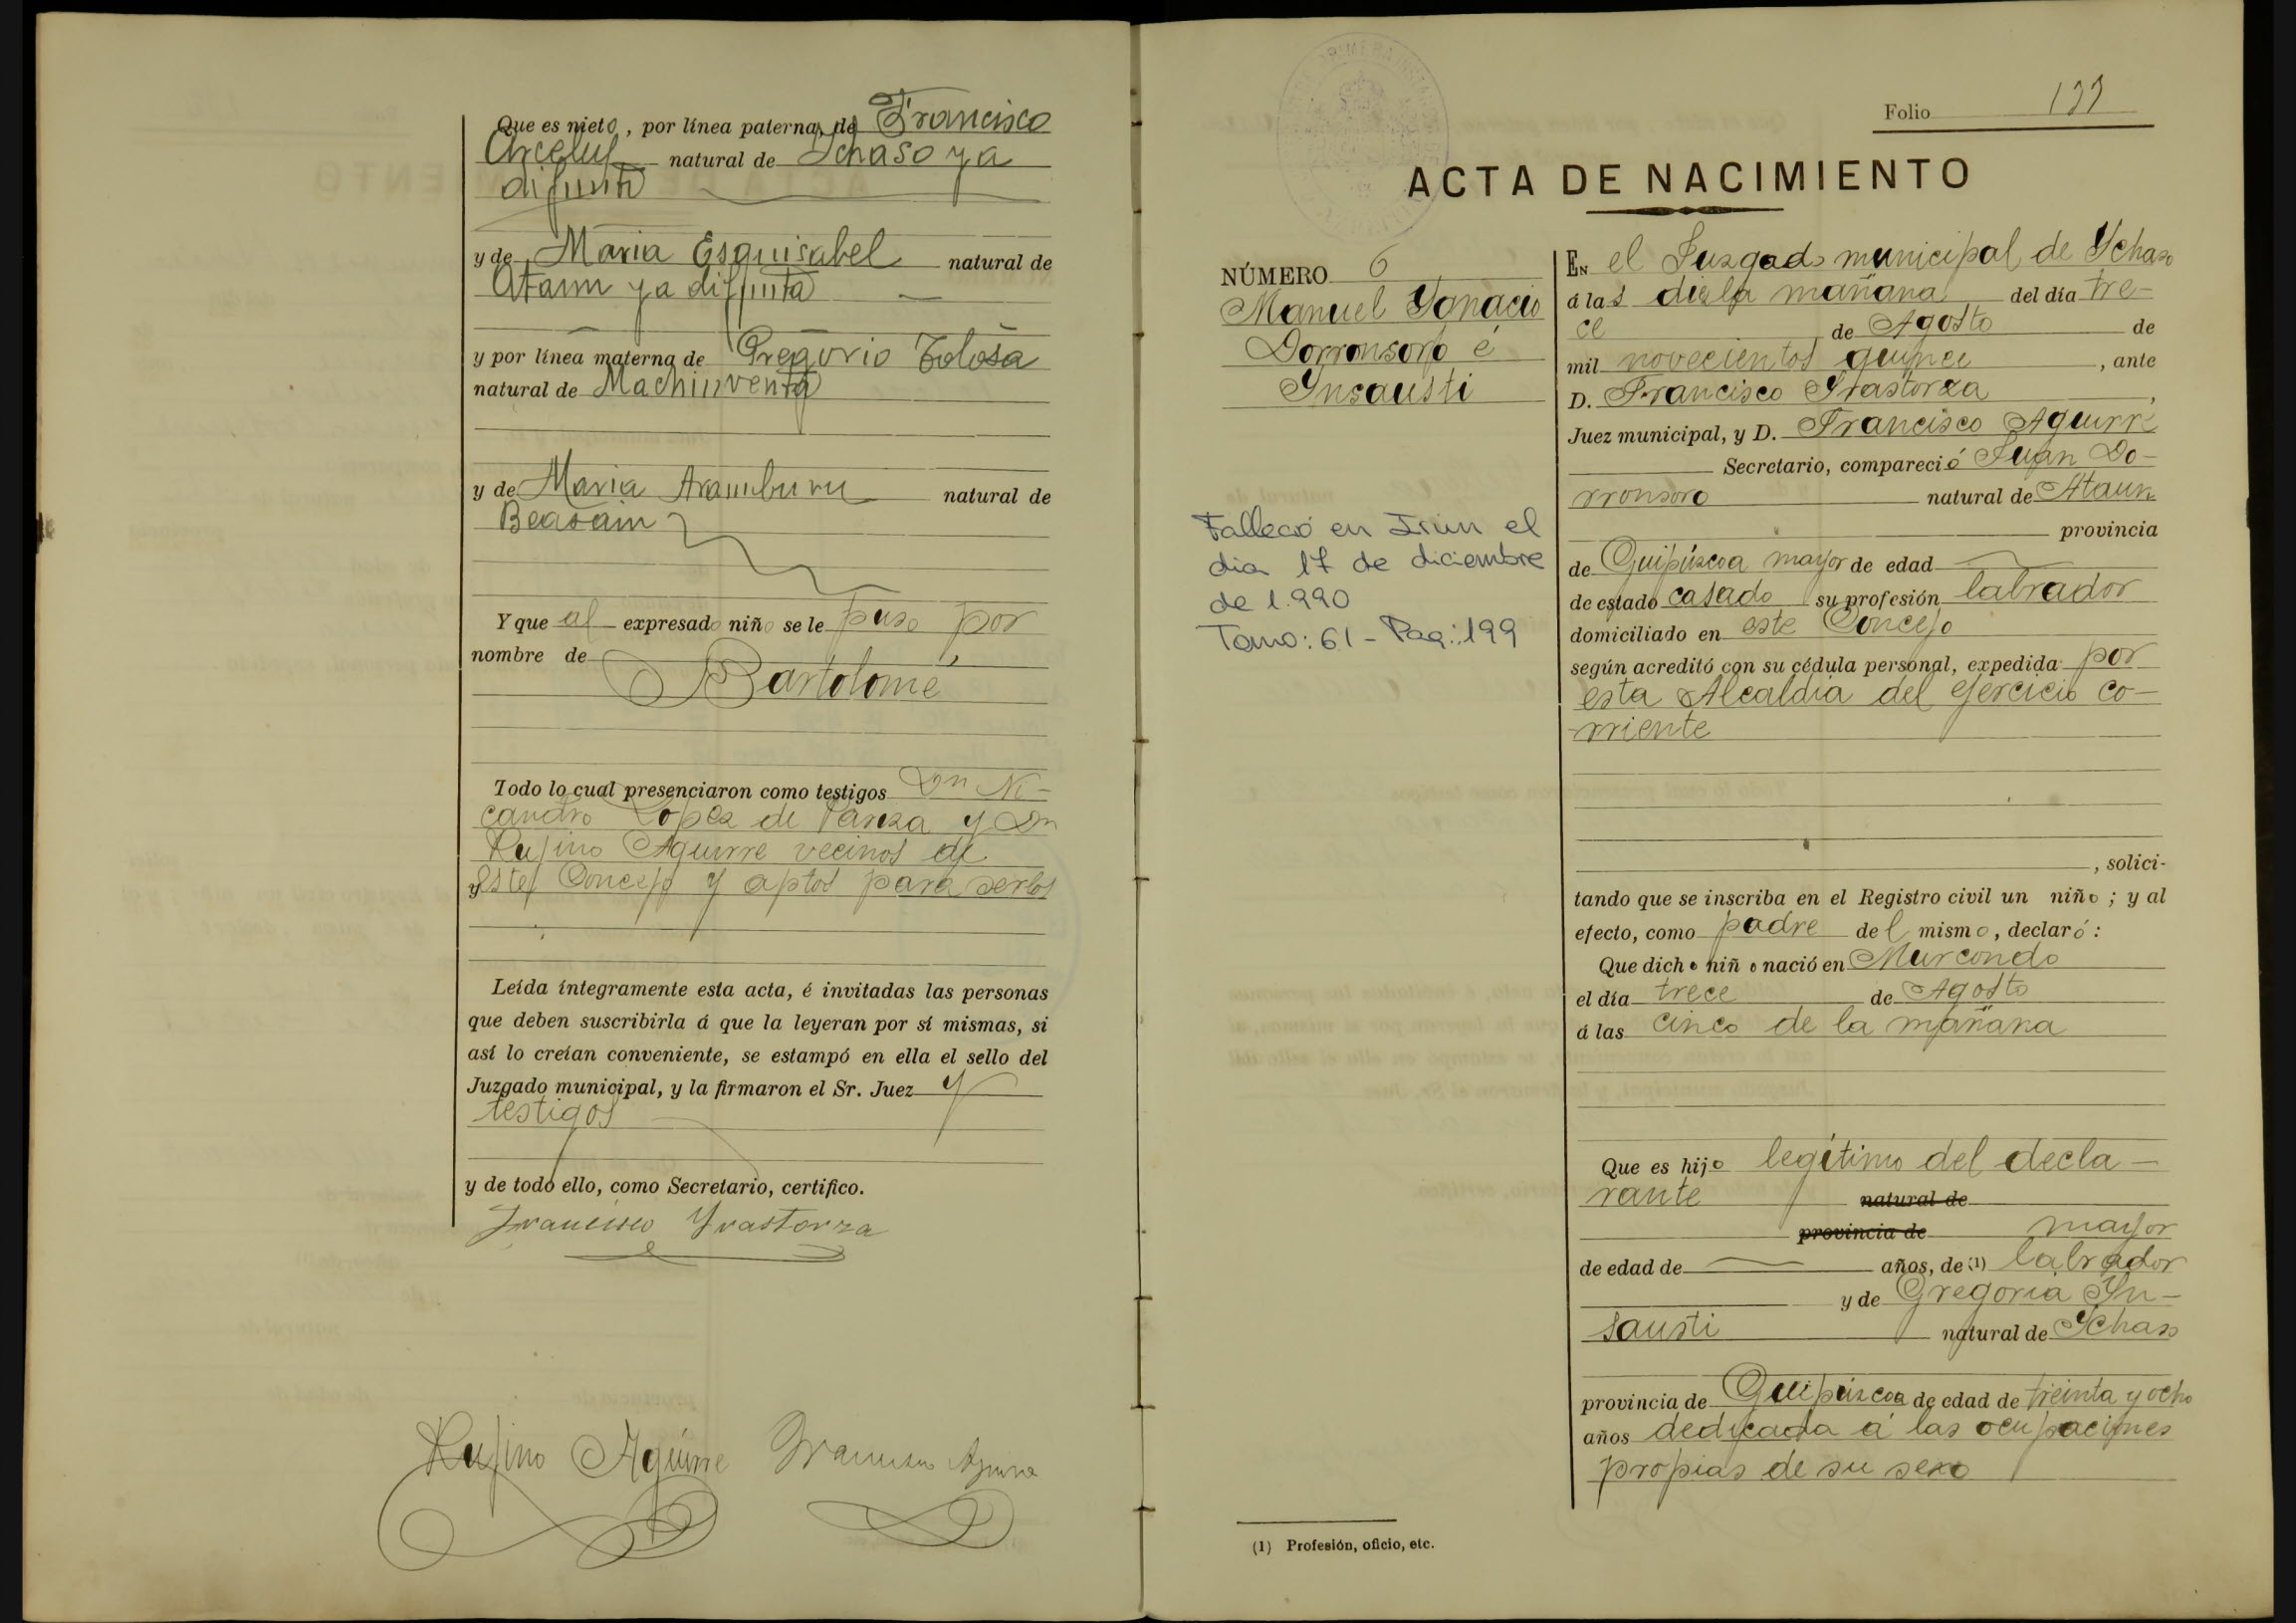 Que es nieto, por línea paterna, de Francisco
Arcelus natural de Ychaso ya
difunto
y de Maria Esquisabel natural de
Ataun ya difunta
y por línea materna de Gregorio Tolosa
natural de Machinventa
y de Maria Aramburu natural de
Beasain
Y que al expresado niño se le puso por
nombre de
Bartolomé
Todo lo cual presenciaron como testigos Dn Ni-
candro Lopez de Pariza y Dn
Rufino Aguirre vecinos de
este Concejo y aptos para serlos
Leída íntegramente esta acta, é invitadas las personas
que deben suscribirla á que la leyeran por sí mismas, si
así lo creían conveniente, se estampó en ella el sello del
Juzgado municipal, y la firmaron el Sr. Juez y
testigos
y de todo ello, como Secretario, certifico.
Francisco Yrastorza
Rufino Aguirre Francisco Aguirre
Folio 177
ACTA DE NACIMIENTO
NÚMERO 6
Manuel Ygnacio
Dorronsoro é
Ynsausti
Falleció en Irún el
dia 17 de diciembre
de 1.990
Tomo: 61 - Pag.: 199
EN el Juzgado municipal de Ychaso
á las diez la mañana del día tre-
ce de Agosto de
mil novecientos quince, ante
D. Francisco Yrastorza,
Juez municipal, y D. Francisco Aguirre
Secretario, compareció Juan Do-
rronsoro natural de Ataun
provincia
de Guipúzcoa mayor de edad
de estado casado su profesión labrador
domiciliado en este Concejo
según acreditó con su cédula personal, expedida por
esta Alcaldia del ejercicio co-
rriente
, solici-
tando que se inscriba en el Registro civil un niño; y al
efecto, como padre del mismo, declaró:
Que dicho niño nació en Murcondo
el día trece de Agosto
á las cinco de la mañana
Que es hijo legítimo del decla-
rante natural de
provincia de mayor
de edad de años, de (1) labrador
y de Gregoria Yn-
sausti natural de Ychaso
provincia de Guipúzcoa de edad de treinta y ocho
años dedicada á las ocupaciones
propias de su sexo
(1) Profesión, oficio, etc.